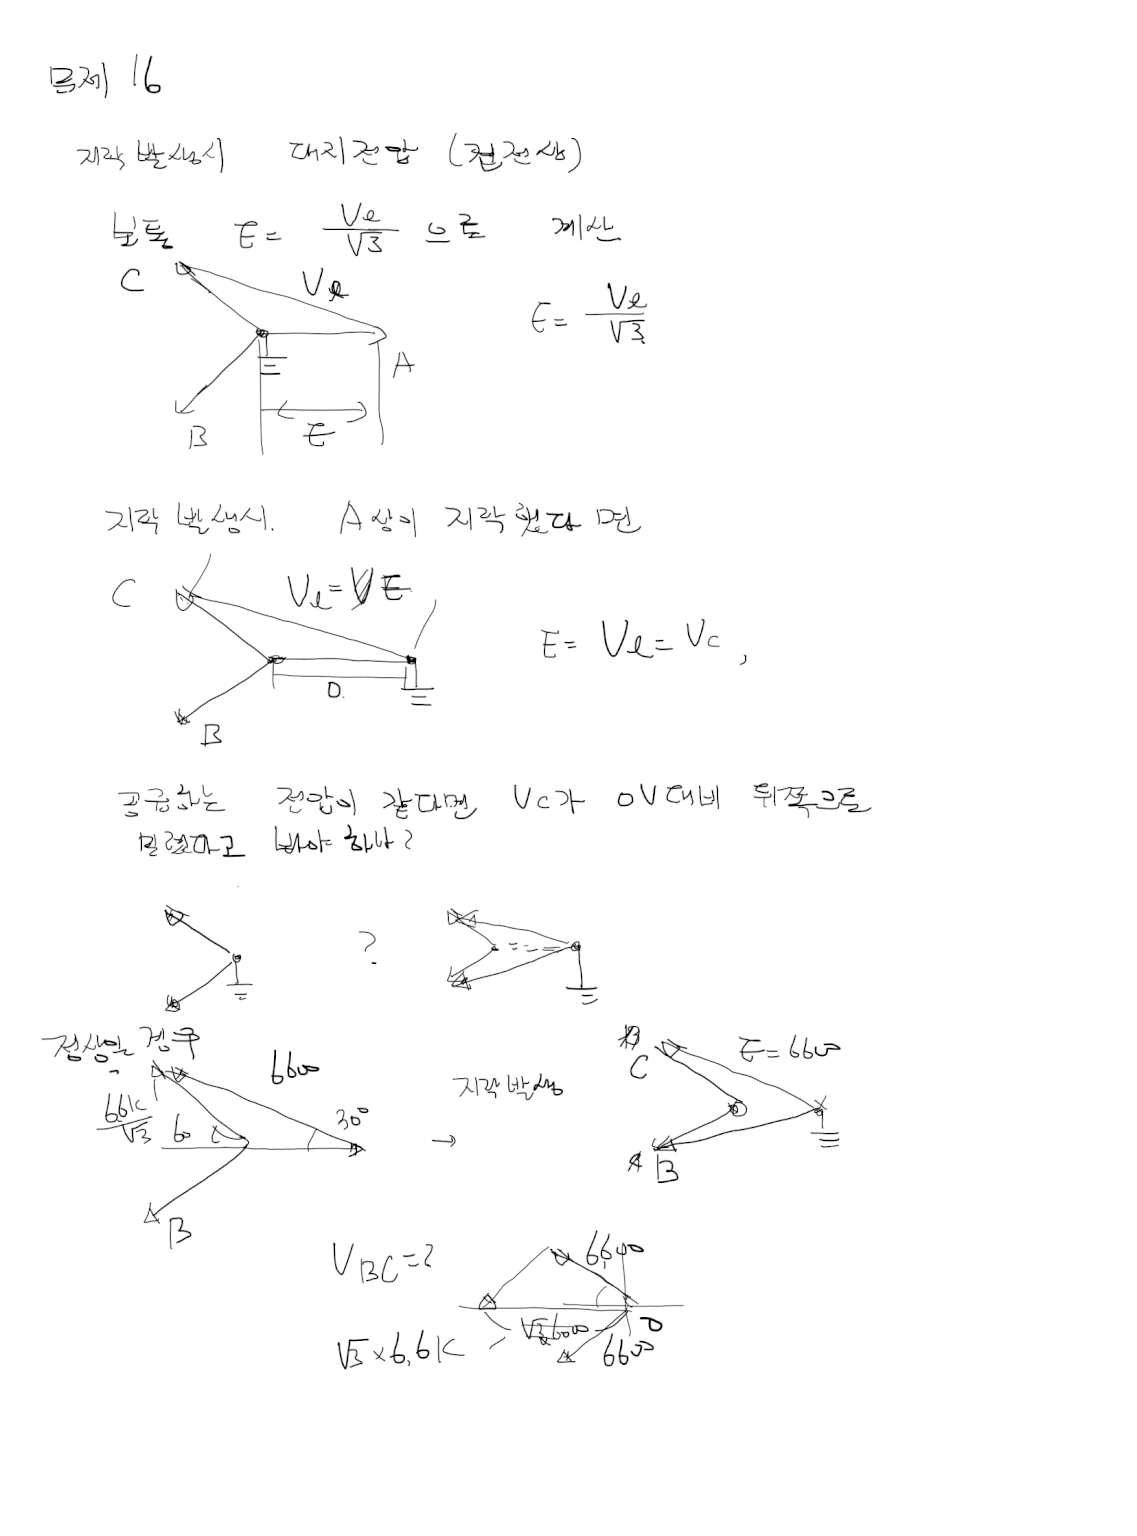 문제 16
지락 발생시 대지전압 (건전상)
보통 E = Vℓ/√3 으로 계산
C Vℓ
E = Vℓ/√3
A
B E
지락 발생시. A상이 지락했다면
C Vℓ = E
E = Vℓ = Vc,
0.
B
공급하는 전압이 같다면 Vc가 0V대비 뒤쪽으로
밀렸다고 봐야 하나?
?
정상일 경우
6600
6.6k/√3 60 30°
지락 발생
→
C E = 6600
B
B
V BC = ?
6600
√3 × 6.6k
0
6600